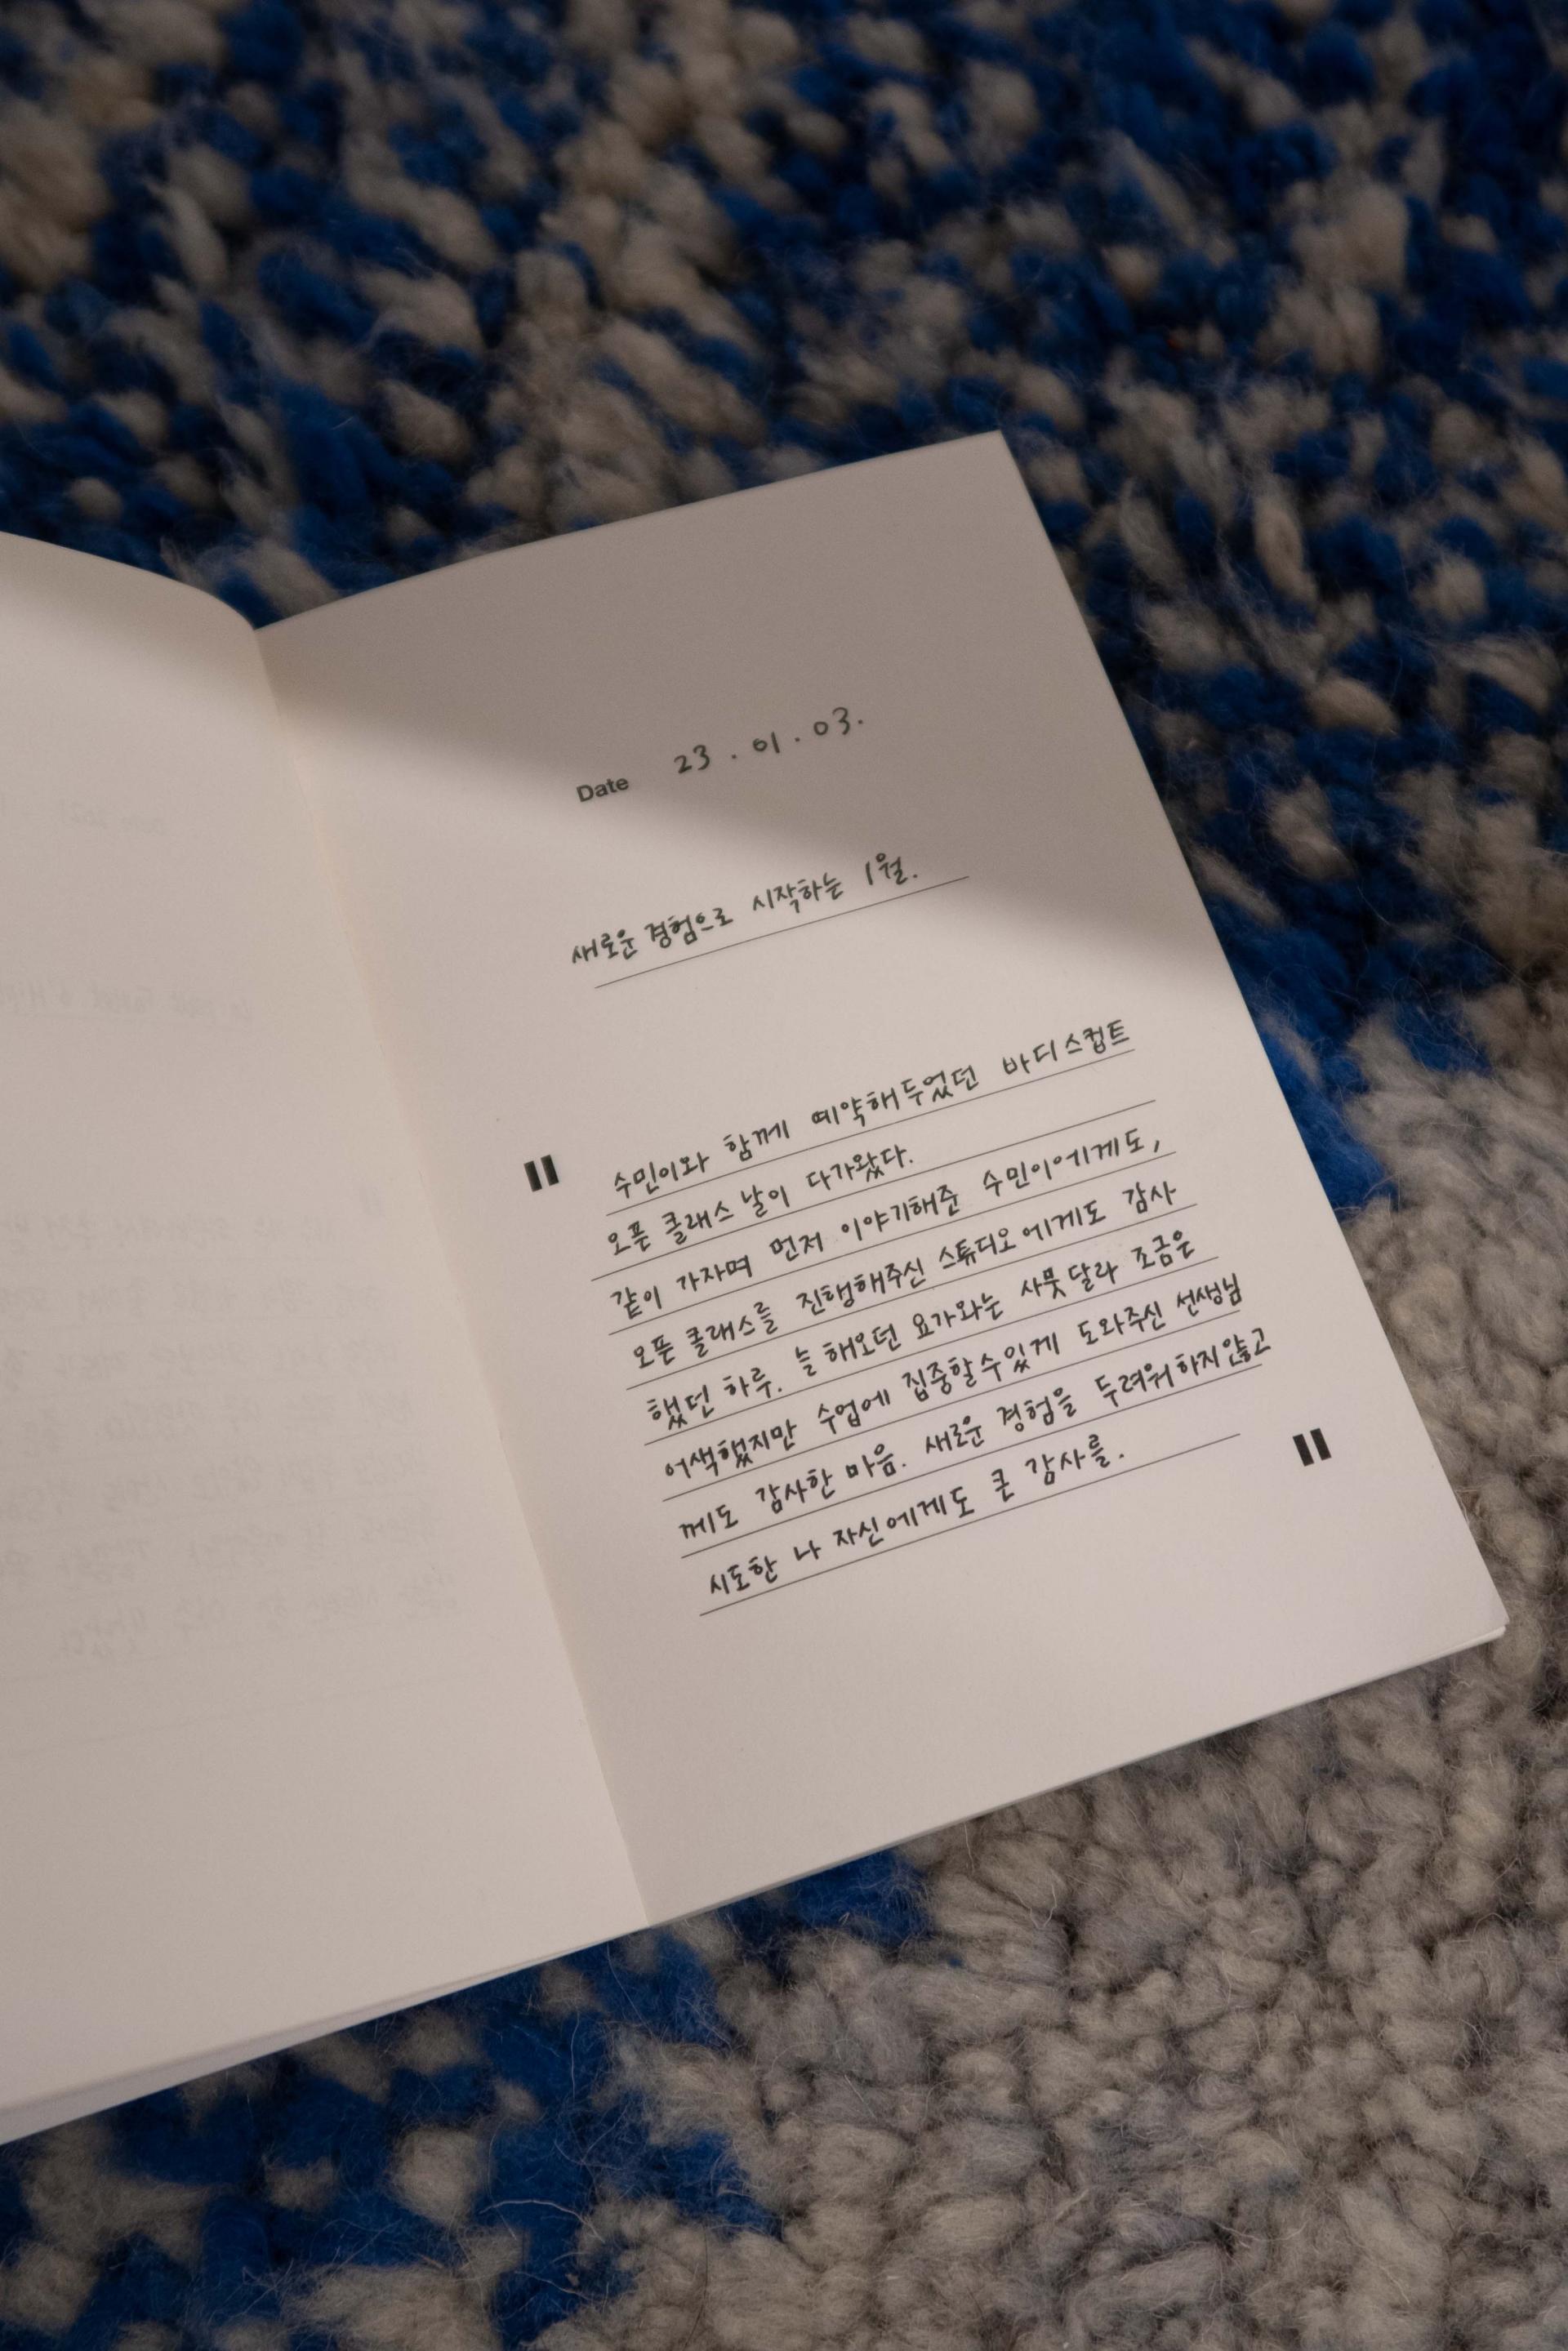 Date 23.01.03.
새로운 경험으로 시작하는 1월.
수민이와 함께 예약해두었던 바디스컬트
오픈 클래스날이 다가왔다.
같이 가자며 먼저 이야기해준 수민이에게도,
오픈 클래스를 진행해주신 스튜디오에게도 감사
했던 하루. 늘 해오던 요가와는 사뭇달라 조금은
어색했지만 수업에 집중할수있게 도와주신 선생님
께도 감사한 마음. 새로운 경험을 두려워하지않고
시도한 나 자신에게도 큰 감사를.